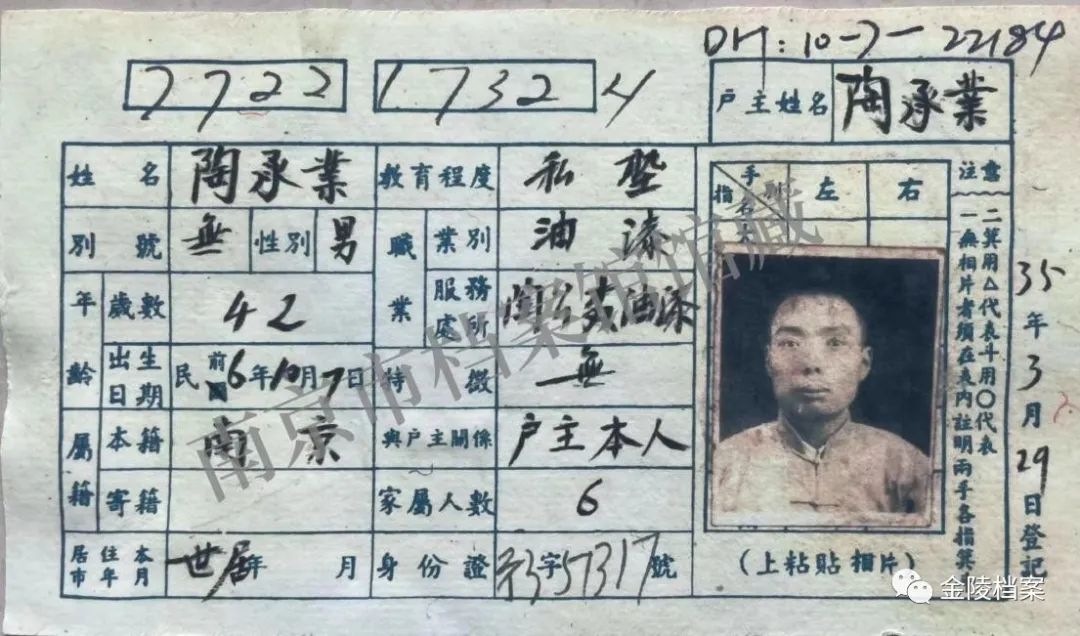 DH:10-7-22184
7722 17324
户主姓名 陶承業
姓名 陶承業 教育程度 私塾
別號 無 性別 男 職業 業別 油漆
年齡 歲數 42 服務處所
出生日期 民前6年10月7日 特徵 無
屬籍 本籍 南京 與户主關係 户主本人
寄籍 家屬人數 6
居住本市年月 世居年 月 身份證 字57317號
指 手 左 右
注意
一無相片者須在表内註明兩手各指箕
二箕用△代表斗用〇代表
35年3月29日登記
(上粘貼相片)
南京市档案馆馆藏
金陵档案